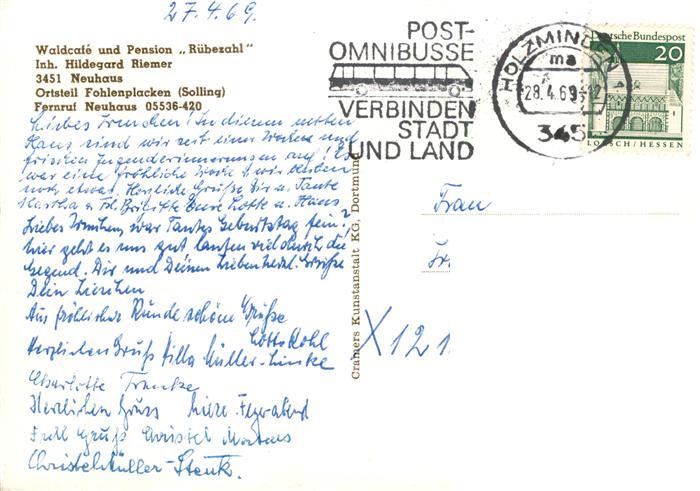 27.4.69.
Waldcafé und Pension „Rübezahl"
Inh. Hildegard Riemer
3451 Neuhaus
Ortsteil Fohlenplacken (Solling)
Fernruf Neuhaus 05536-420
POST-
OMNIBUSSE
VERBINDEN
STADT
UND LAND
HOLZMINDEN 1
ma
28.4.69-12
345
Deutsche Bundespost
20
LORSCH/HESSEN
Liebes Irmchen! In diesem netten
Haus sind wir seit einer Woche und
frischen Jugenderinnerungen auf! Es
war eine fröhliche Woche & wir bleiben
noch etwas. Herzliche Grüße Dir u. Tante
Martha u. Frl. Brigitte Eure Lotte u. Hans
Liebes Irmchen, war Tantes Geburtstag fein?
hier geht es uns gut laufen viel durch die
Gegend. Dir und Deinen Lieben herzl. Grüße
Dein Lieschen
Aus fröhlicher Runde schöne Grüße
Lotte Kohl
Herzlichen Gruß Hilla Müller-Linke
Charlotte Francke
Herzlichen Gruss Feyerabend
Gruß Christel
Christel Müller-
Cramers Kunstanstalt KG, Dortmund
Frau
Fr.
X 121